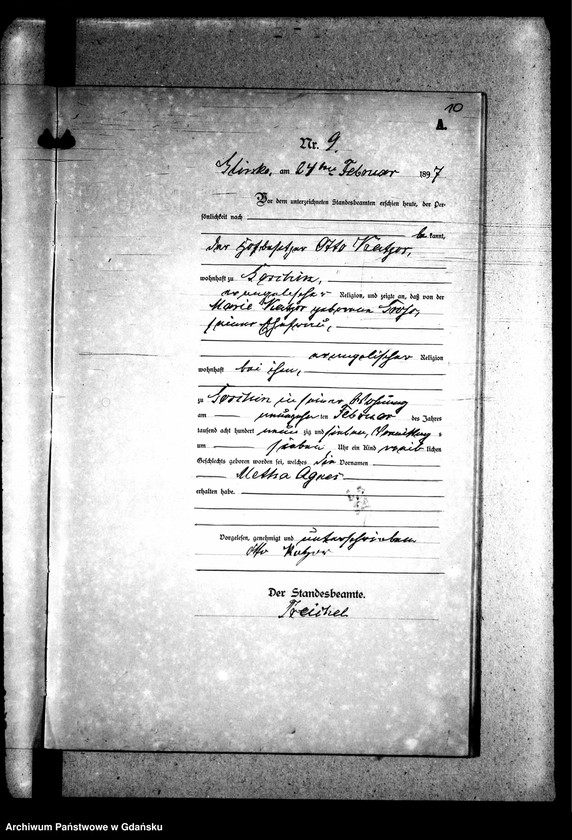 10
A.
Nr. 9.
Glinke, am 24ten Februar 1897
Vor dem unterzeichneten Standesbeamten erschien heute, der Per-
sönlichkeit nach
be kannt,
der Hofbesitzer Otto Katzor,
wohnhaft zu
evangelischer Religion, und zeigte an, daß von der
Marie Katzor geborenen
seiner Ehefrau,
evangelischer Religion
wohnhaft bei ihm,
zu in seiner Wohnung
am Februar des Jahres
tausend acht hundert neun zig und sieben, Vormittags
um sieben Uhr ein Kind weib lichen
Geschlechts geboren worden sei, welches die Vornamen
Metha Agnes
erhalten habe.
Vorgelesen, genehmigt und unterschrieben
Otto Katzor
Der Standesbeamte.
Treichel
Archiwum Państwowe w Gdańsku